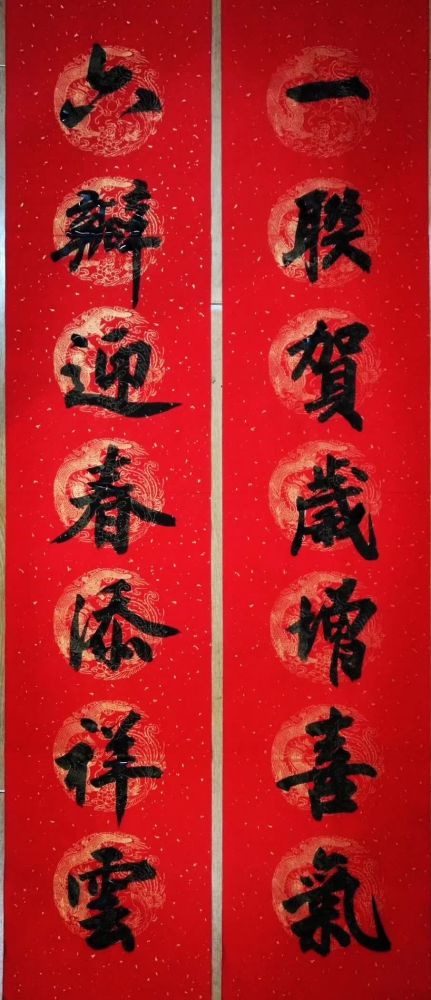 一聯賀歲增喜氣
六瓣迎春添祥雲